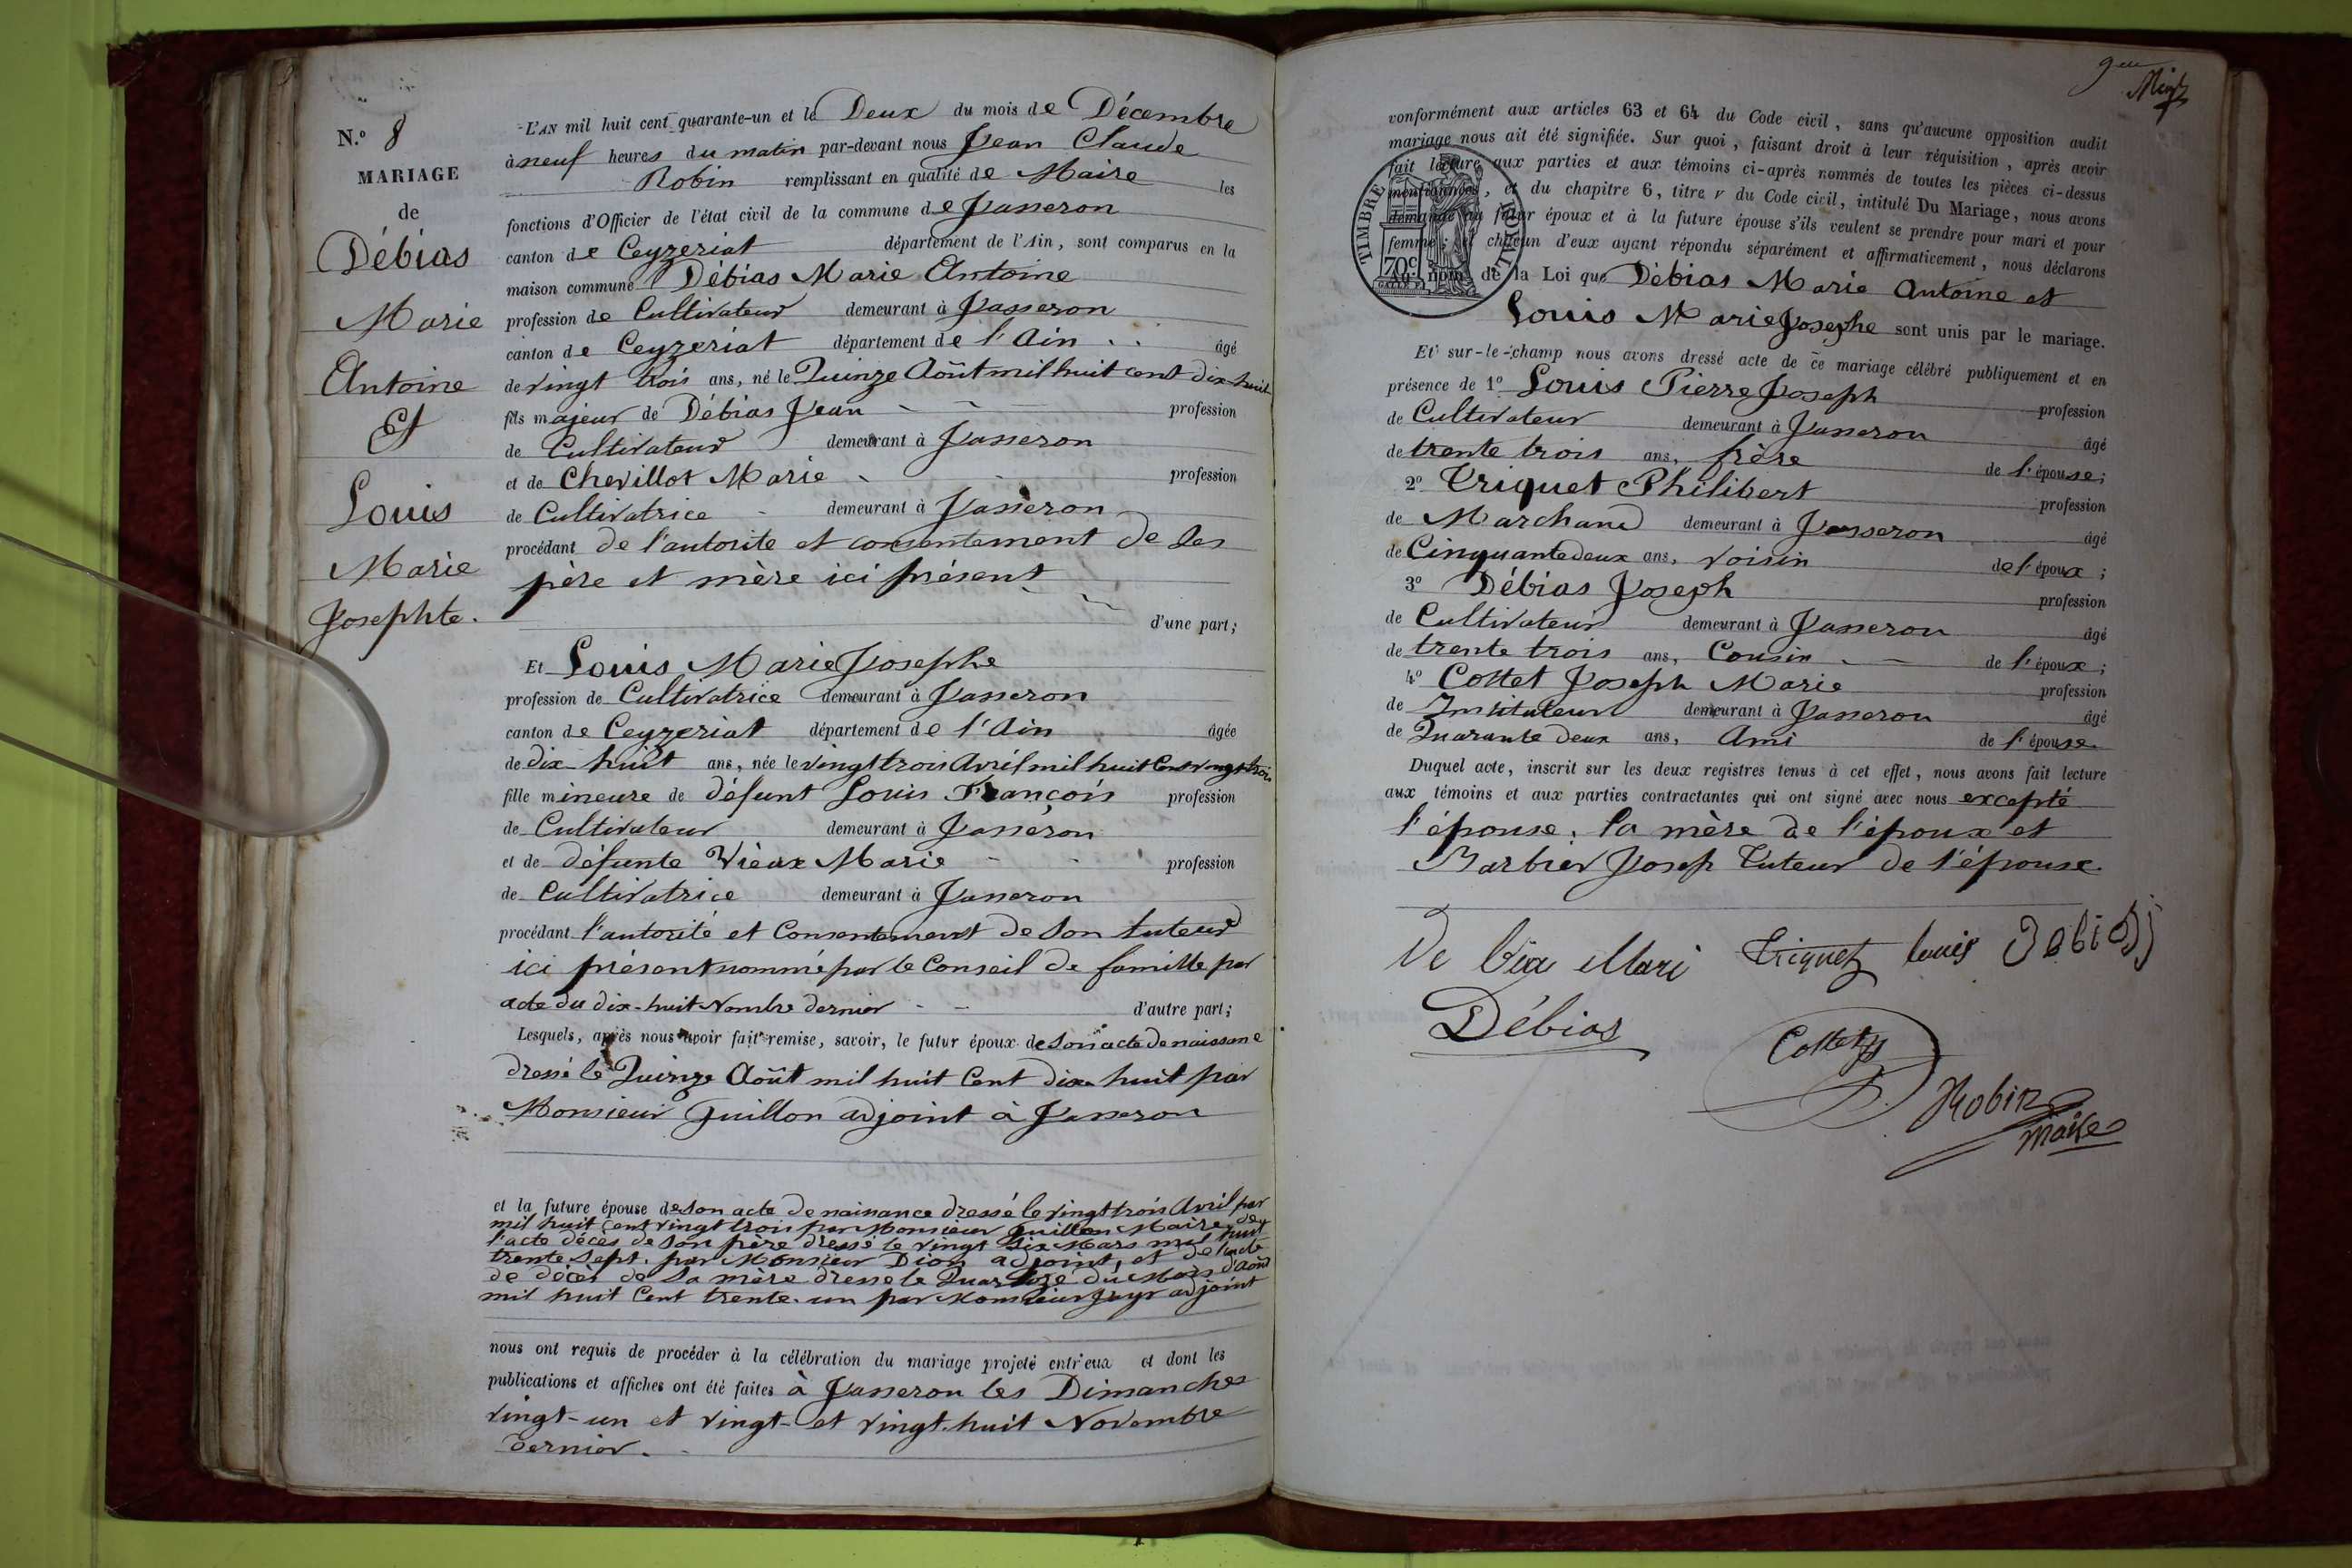 N.º 8
MARIAGE
de
Débias
Marie
Antoine
Et
Louis
Marie
Josephte.
L'AN mil huit cent quarante-un et le Deux du mois de Décembre
à neuf heures du matin par-devant nous Jean Claude
Robin remplissant en qualité de Maire les
fonctions d'Officier de l'état civil de la commune de Jasseron
canton de Ceyzeriat département de l'Ain, sont comparus en la
maison commune Débias Marie Antoine
profession de Cultivateur demeurant à Jasseron
canton de Ceyzeriat département de l'Ain âgé
de vingt trois ans, né le Quinze Août mil huit cent dix-huit
fils majeur de Débias Jean profession
de Cultivateur demeurant à Jasseron
et de Chevillot Marie profession
de Cultivatrice demeurant à Jasseron
procédant de l'autorite et consentement de ses
père et mère ici présent
d'une part;
Et Louis Marie Josephe
profession de Cultivatrice demeurant à Jasseron
canton de Ceyzeriat département de l'Ain âgée
de dix-huit ans, née le vingt trois Avril mil huit Cent vingt trois
fille mineure de défunt Louis François profession
de Cultivateur demeurant à Jasseron
et de défunte Vieux Marie profession
de Cultivatrice demeurant à Jasseron
procédant l'autorité et Consentement de son tuteur
ici présent nommé par le Conseil de famille par
acte du dix-huit Nombre dernier d'autre part;
Lesquels, après nous avoir fait remise, savoir, le futur époux de son acte de naissane
dressé le Quinze Août mil huit Cent dix-huit par
Monsieur Guillon adjoint à Jasseron
et la future épouse de son acte de naissance dressé le vingt trois Avril par
mil huit cent vingt trois par Monsieur Guillon Maire, de
l'acte décès de son père dressé le vingt six Mars mil huit
trente sept. par Monsieur Dion adjoint, et de l'acte
de décès de sa mère dresse le Quatorze du Mois d'Août
mil huit Cent trente-un par Monsieur adjoint
nous ont requis de procéder à la célébration du mariage projeté entr'eux et dont les
publications et affiches ont été faites à Jasseron les Dimanches
vingt-un et vingt-et vingt-huit Novembre
dernier.
conformément aux articles 63 et 64 du Code civil, sans qu'aucune opposition audit
mariage nous ait été signifiée. Sur quoi, faisant droit à leur réquisition, après avoir
fait lecture aux parties et aux témoins ci-après nommés de toutes les pièces ci-dessus
mentionnées, et du chapitre 6, titre v du Code civil, intitulé Du Mariage, nous avons
demandé au futur époux et à la future épouse s'ils veulent se prendre pour mari et pour
femme; et chacun d'eux ayant répondu séparément et affirmativement, nous déclarons
Au nom de la Loi que Débias Marie Antoine et
Louis Marie Josephe sont unis par le mariage.
TIMBRE ROYAL
70c
Et sur-le-champ nous avons dressé acte de ce mariage célébré publiquement et en
présence de 1º Louis Pierre Joseph profession
de Cultivateur demeurant à Jasseron âgé
de trente trois ans, frère de l'épouse;
2º Triquet Philibert profession
de Marchand demeurant à Jasseron âgé
de Cinquante deux ans, voisin de l'époux;
3º Débias Joseph profession
de Cultivateur demeurant à Jasseron âgé
de trente trois ans, Cousin de l'époux;
4º Cottet Joseph Marie profession
de Instituteur demeurant à Jasseron âgé
de Quarante deux ans, Ami de l'épouse.
Duquel acte, inscrit sur les deux registres tenus à cet effet, nous avons fait lecture
aux témoins et aux parties contractantes qui ont signé avec nous excepté
l'épouse, la mère de l'époux et
Barbier Josep Tuteur de l'épouse.
De bia Mari Triquet louis Debias j
Débias
Cottet
Robin
maire